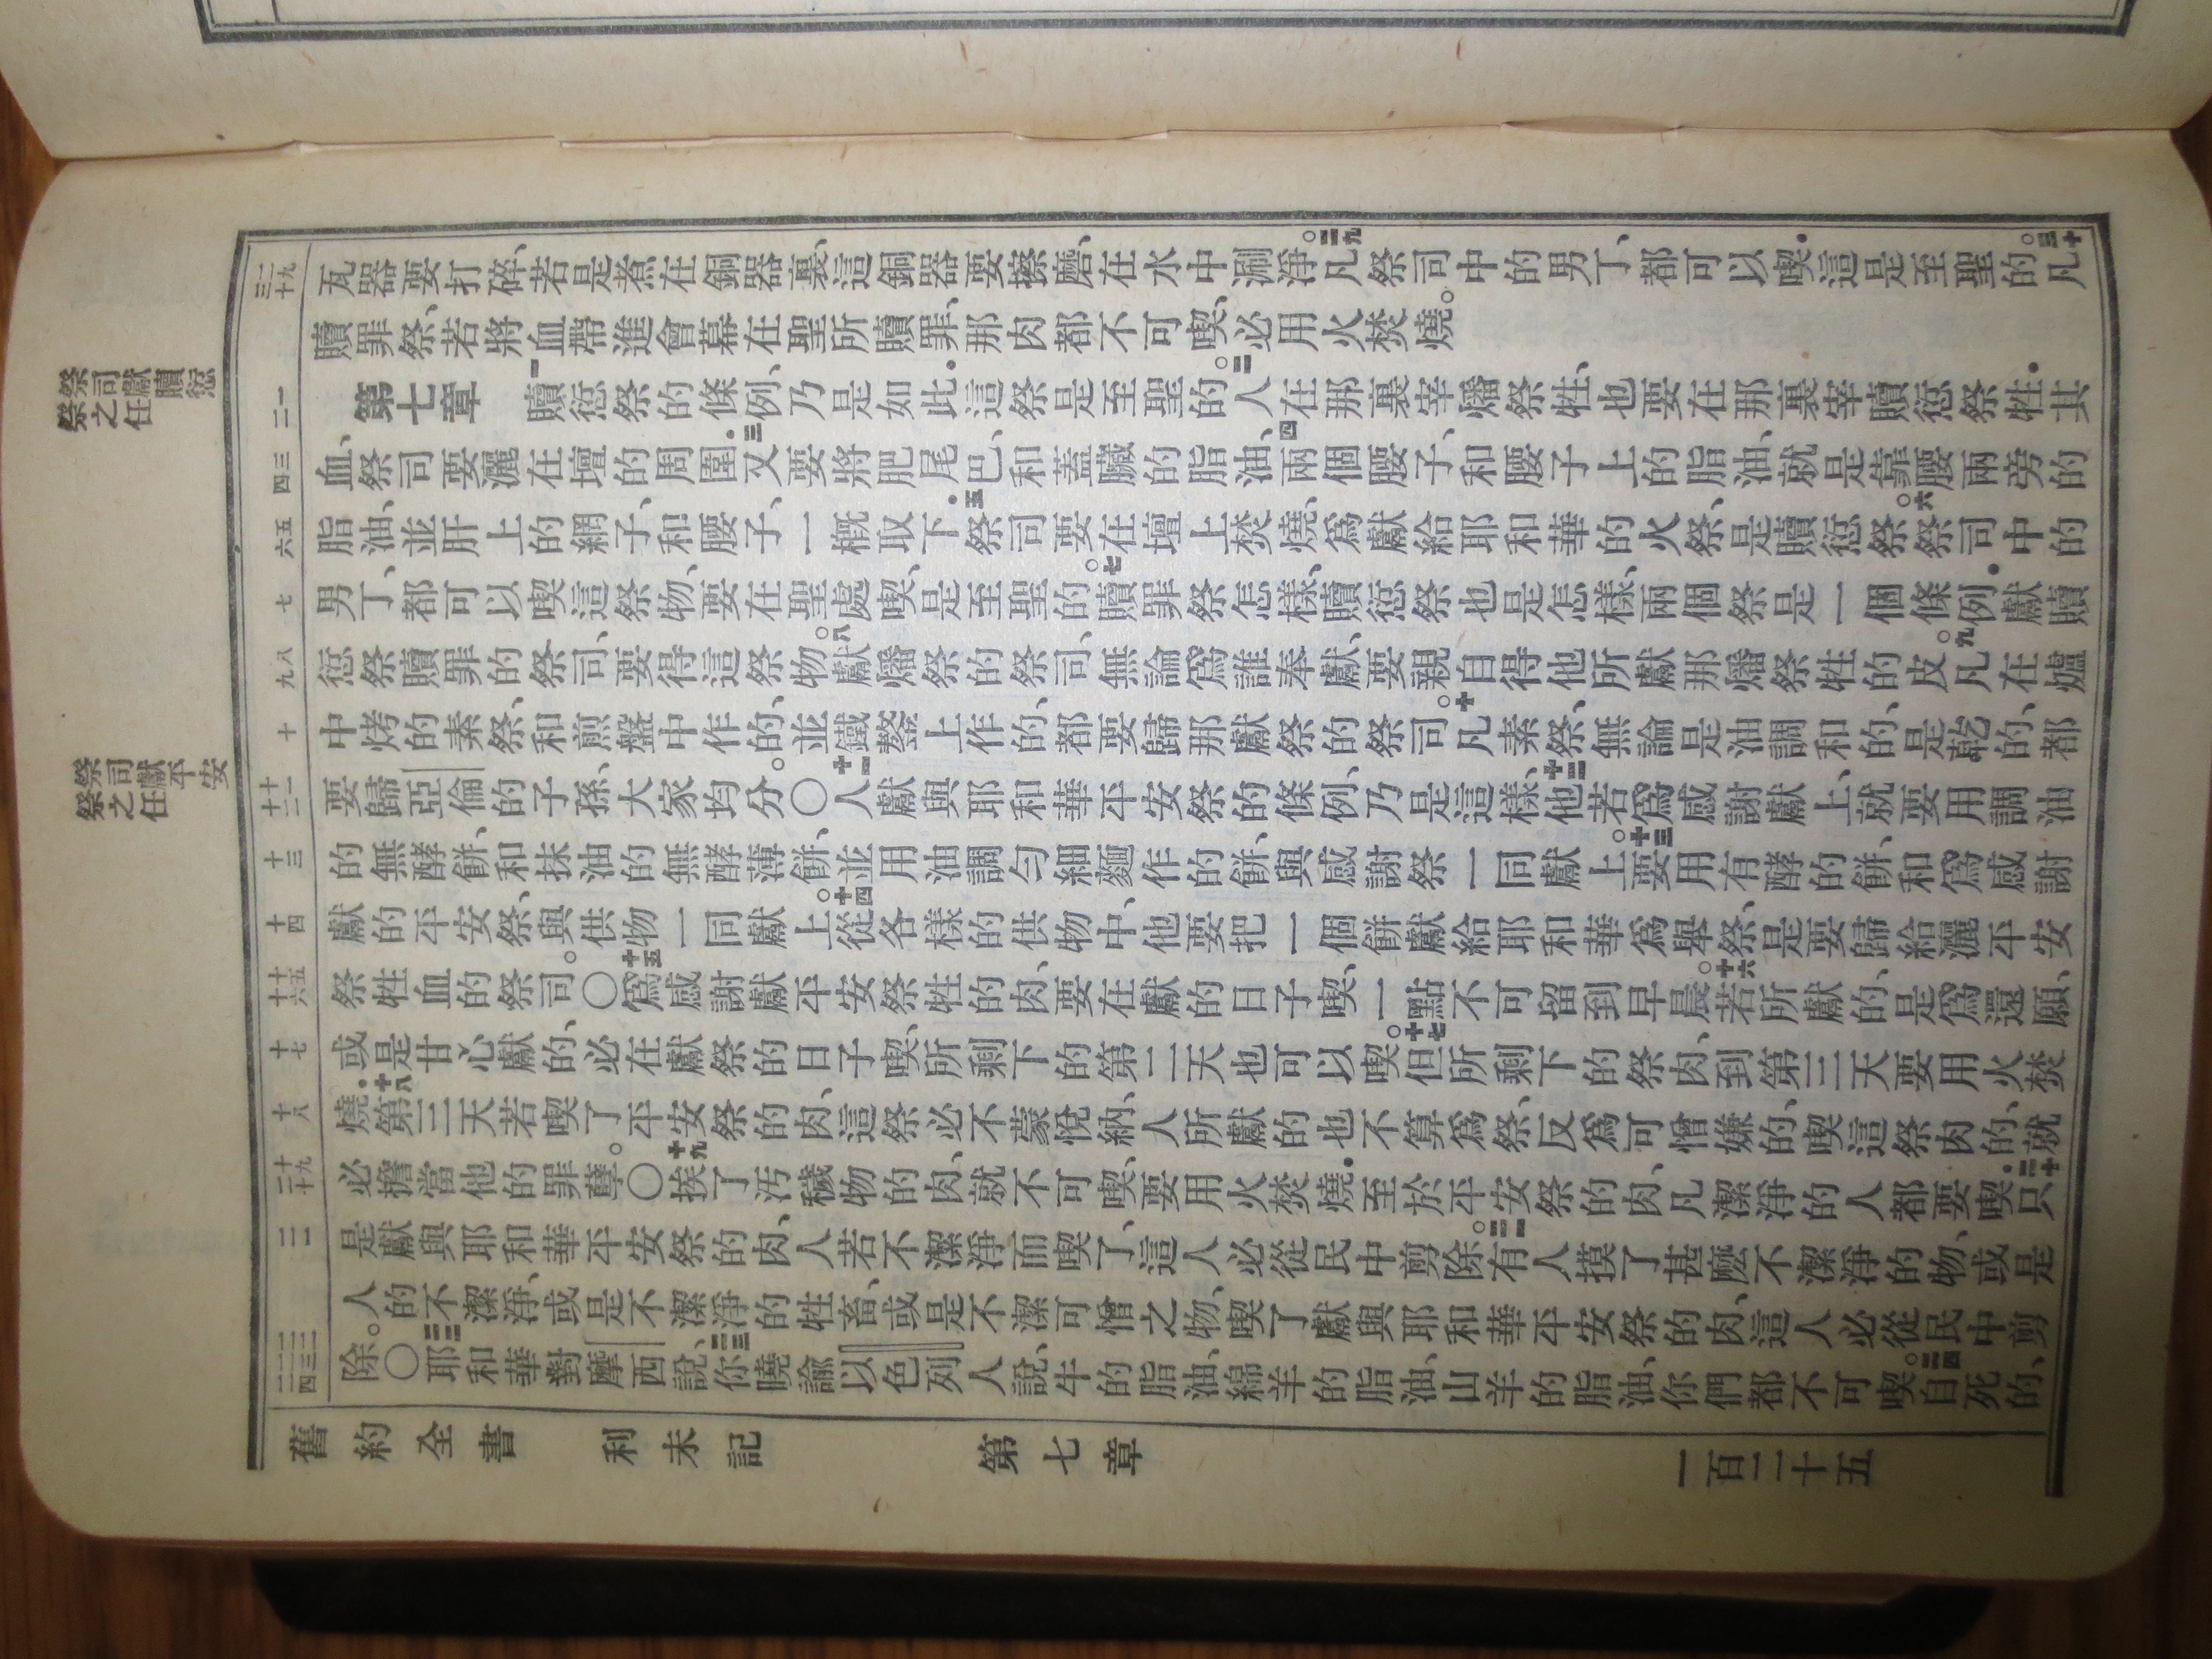 祭司獻贖愆
祭之任
祭司獻平安
祭之任
二十九
三十
一
二
三
四
五
六
七
八
九
十
十一
十二
十三
十四
十五
十六
十七
十八
十九
二十
二一
二二
二三
二四
瓦器要打碎、若是煮在銅器裏、這銅器要擦磨、在水中涮淨。二九凡祭司中的男丁、都可以喫.這是至聖的。三十凡
贖罪祭、若將血帶進會幕在聖所贖罪、那肉都不可喫、必用火焚燒。
第七章 一贖愆祭的條例、乃是如此.這祭是至聖的。二人在那裏宰燔祭牲、也要在那裏宰贖愆祭牲.其
血、祭司要灑在壇的周圍.三又要將肥尾巴、和蓋臟的脂油、四兩個腰子、和腰子上的脂油、就是靠腰兩旁的
脂油、並肝上的網子、和腰子、一概取下.五祭司要在壇上焚燒、爲獻給耶和華的火祭、是贖愆祭。六祭司中的
男丁、都可以喫這祭物、要在聖處喫、是至聖的。七贖罪祭怎樣、贖愆祭也是怎樣、兩個祭是一個條例.獻贖
愆祭贖罪的祭司、要得這祭物。八獻燔祭的祭司、無論爲誰奉獻、要親自得他所獻那燔祭牲的皮。九凡在爐
中烤的素祭、和煎盤中作的、並鐵鏊上作的、都要歸那獻祭的祭司。十凡素祭、無論是油調和的、是乾的、都
要歸亞倫的子孫、大家均分。〇十一人獻與耶和華平安祭的條例、乃是這樣、十二他若爲感謝獻上、就要用調油
的無酵餅、和抹油的無酵薄餅、並用油調勻細麵作的餅、與感謝祭一同獻上。十三要用有酵的餅、和爲感謝
獻的平安祭、與供物一同獻上。十四從各樣的供物中、他要把一個餅獻給耶和華爲舉祭、是要歸給灑平安
祭牲血的祭司。〇十五爲感謝獻平安祭牲的肉、要在獻的日子喫、一點不可留到早晨。十六若所獻的、是爲還願、
或是甘心獻的、必在獻祭的日子喫、所剩下的第二天也可以喫。十七但所剩下的祭肉、到第三天要用火焚
燒.十八第三天若喫了平安祭的肉、這祭必不蒙悅納、人所獻的也不算爲祭、反爲可憎嫌的、喫這祭肉的、就
必擔當他的罪孽。〇十九挨了汚穢物的肉、就不可喫、要用火焚燒.至於平安祭的肉、凡潔淨的人都要喫.二十只
是獻與耶和華平安祭的肉、人若不潔淨而喫了、這人必從民中剪除。二一有人摸了甚麼不潔淨的物、或是
人的不潔淨、或是不潔淨的牲畜、或是不潔可憎之物、喫了獻與耶和華平安祭的肉、這人必從民中剪
除。〇二二耶和華對摩西說、二三你曉諭以色列人說、牛的脂油、綿羊的脂油、山羊的脂油、你們都不可喫。二四自死的、
舊約全書 利未記 第七章 一百二十五